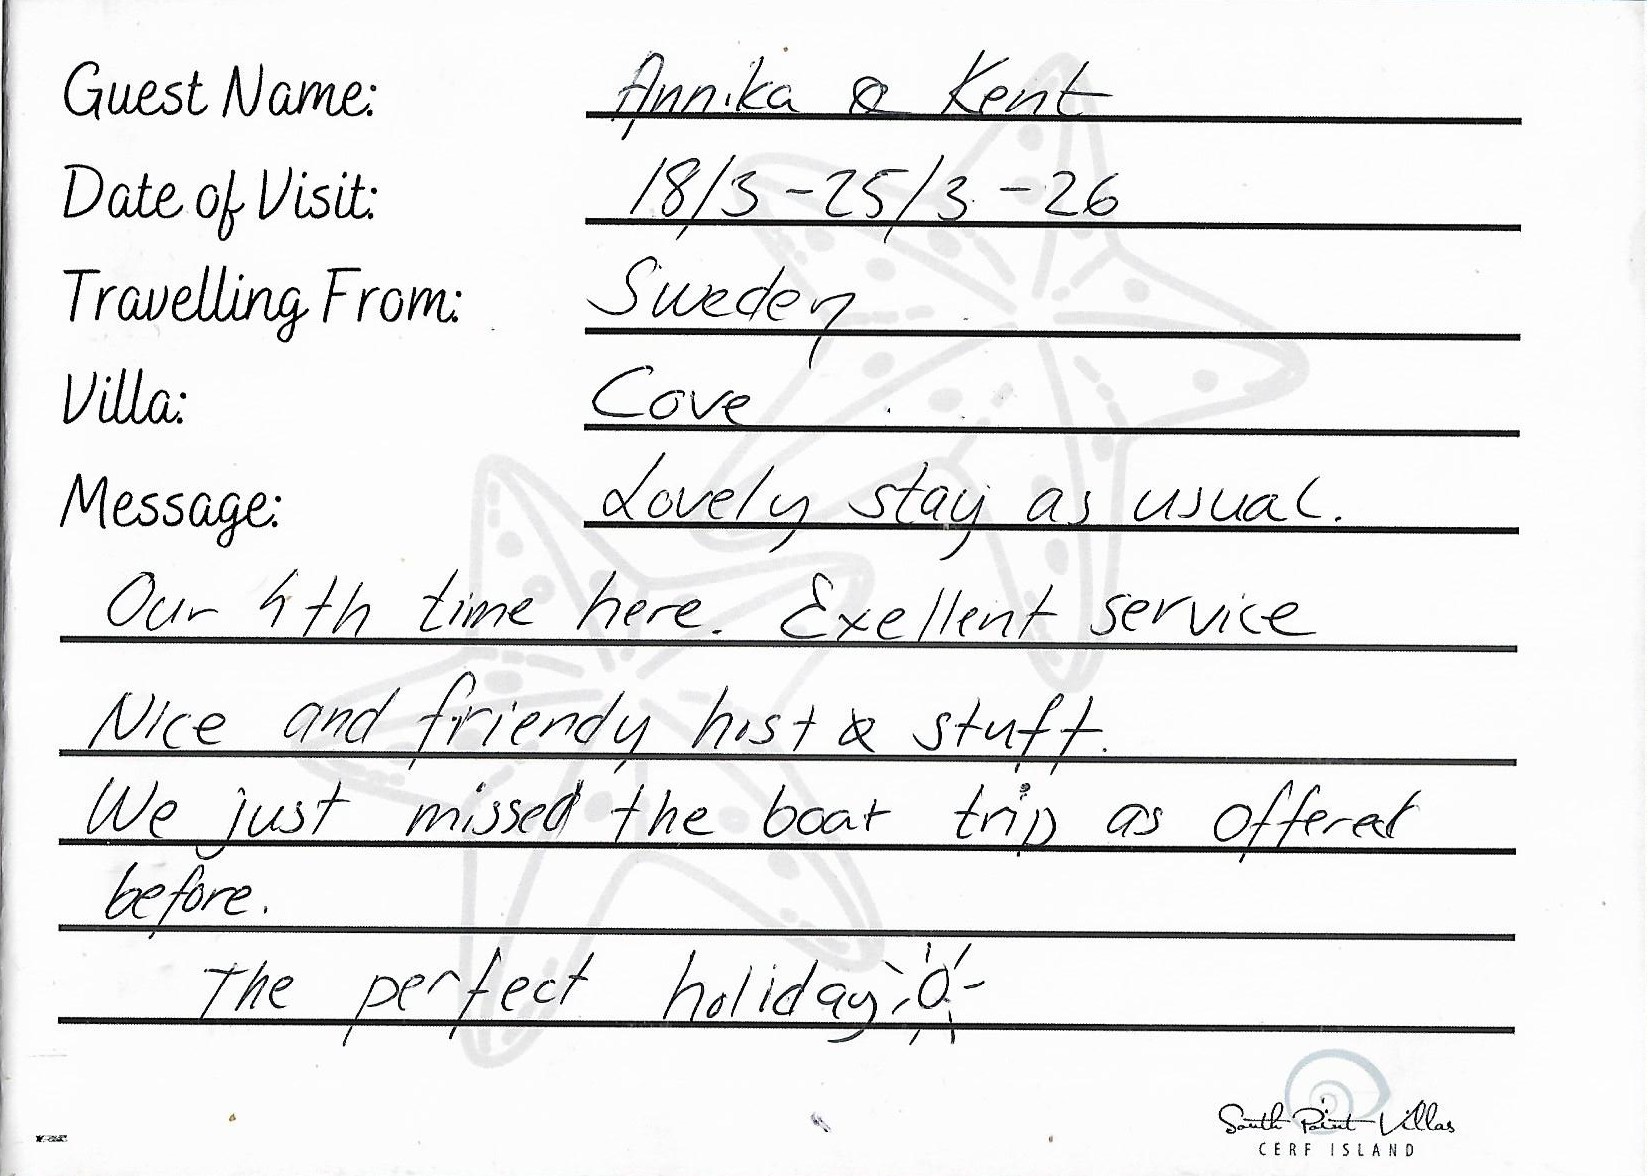 Guest Name: Annika & Kent
Date of Visit: 18/3-25/3-26
Travelling From: Sweden
Villa: Cove
Message: Lovely stay as usual.
Our 4th time here. Exellent service
Nice and friendy host & stuff.
We just missed the boat trip as offered
before.
The perfect holiday
South Point Villas
CERF ISLAND